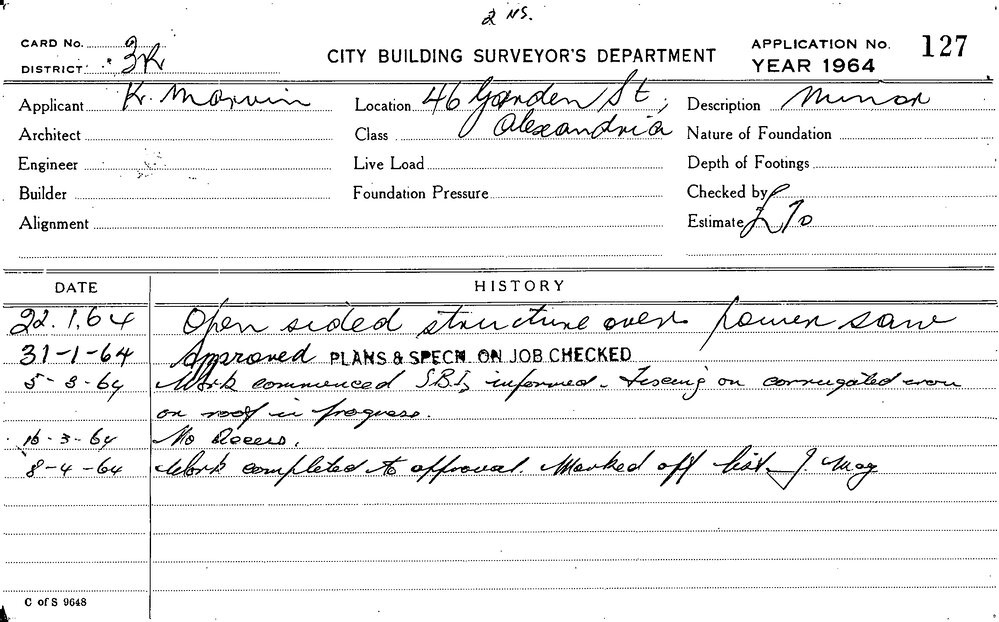 2 NS.
CARD No.
DISTRICT 3R
CITY BUILDING SURVEYOR'S DEPARTMENT
APPLICATION No. 127
YEAR 1964
Applicant K. Marvin
Location 46 Garden St,
Description Minor
Architect
Class Alexandria
Nature of Foundation
Engineer
Live Load
Depth of Footings
Builder
Foundation Pressure
Checked by
Alignment
Estimate £70
DATE HISTORY
22.1.64 Open sided structure over power saw
31-1-64 Approved PLANS & SPECN. ON JOB CHECKED
5-3-64 Work commenced S.B.I. informed. Fixing on corrugated iron
on roof in progress.
16-3-64 No Access.
8-4-64 Work completed to approval. Marked off list J. May
C of S 9648